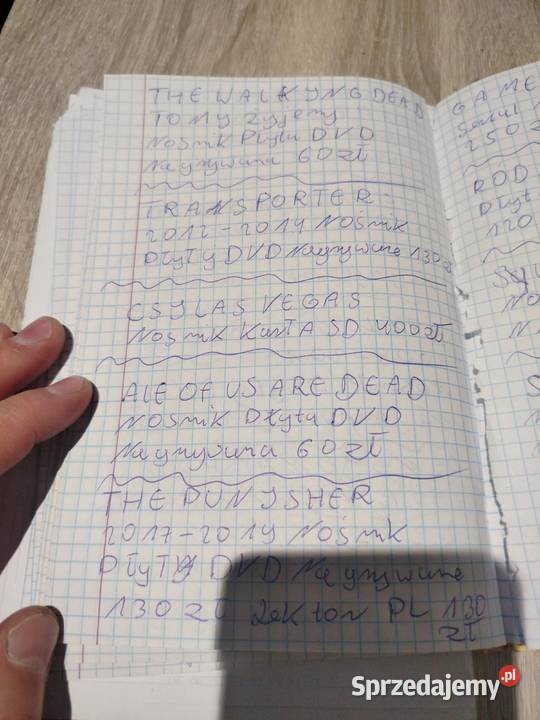 THE WALKYNG DEAD
TO MY żyjemy
NOŚNIK Płyta DVD
Nagrywana 60 zł
TRANSPORTER -
2012-2014 NOŚNIK
PłyTy DVD Nagrywane 130 zł
CSY LAS VEGAS
NOŚNIK KartA SD 400 zł
ALE OF US ARE DEAD
NOŚNIK Płyta DVD
Nagrywana 60 zł
THE PUNYSHER
2017-2019 NOŚNIK
PłyTy DVD Nagrywane
130 zł Lektor PL 130
zł
GAME
Serial
250 z
ROD
Płyt
120
NO
N
S
Sprzedajemy.pl